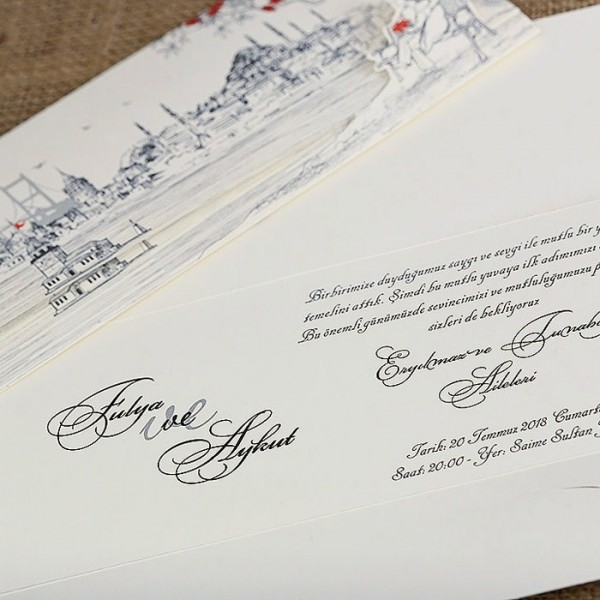 Fulya
ve
Aykut
Birbirimize duyduğumuz saygı ve sevgi ile mutlu bir
temelini attık. Şimdi bu mutlu yuvaya ilk adımımızı
Bu önemli günümüzde sevincimizi ve mutluluğumuzu
sizleri de bekliyoruz
Eryılmaz ve
Aileleri
Tarik: 20 Temmuz 2018
Saat: 20:00 - Yer: Saime Sultan